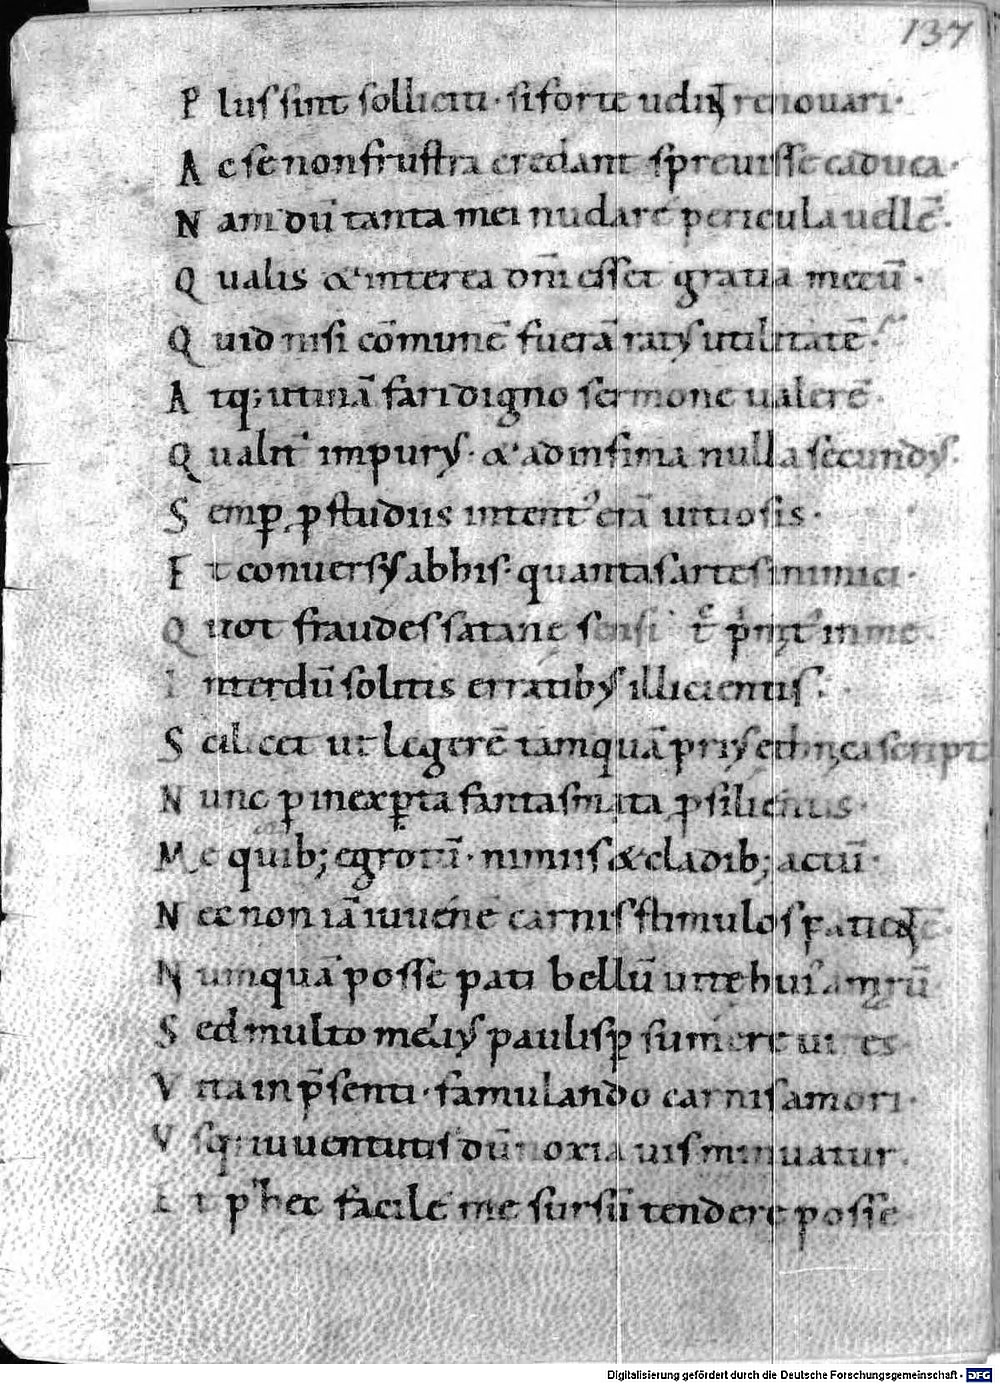 137
P lus sint solliciti · si forte
A c se non frustra credant spreuisse caduca ·
N am dū tanta mei nudare pericula uellē ·
Q ualis & interea dn̄i esset gratia mecū ·
Q uid nisi cōmunē fuerā utilitatē ·
A tq; utinā fari digno sermone ualerē ·
Q ualit̄ impurꝰ · & ad infima nulla secundꝰ ·
S emꝑ ꝓ studiis intentꝰ erā uitiosis ·
E t conuersꝰ ab his · quantas artes inimici ·
Q uot fraudes satane sensi in me ·
I nterdū solitis erratibꝰ illicientis ·
S cilicet ut legerē tāmquā priꝰ script
N unc ꝑ inexꝑta fantasmata ꝓsilientis ·
M e quib; egrotū · nimiis & cladib; actū ·
N ec non iā iuuenē carnis stimulos
N umquā posse pati bellū
S ed multo meliꝰ paulisꝑ sumere uires
V ita in p̄senti · famulando carnis amori ·
V sq; iuuentutis dū noxia uis minuatur ·
E t p' hec facile me sursū tendere posse
Digitalisierung gefördert durch die Deutsche Forschungsgemeinschaft - DFG